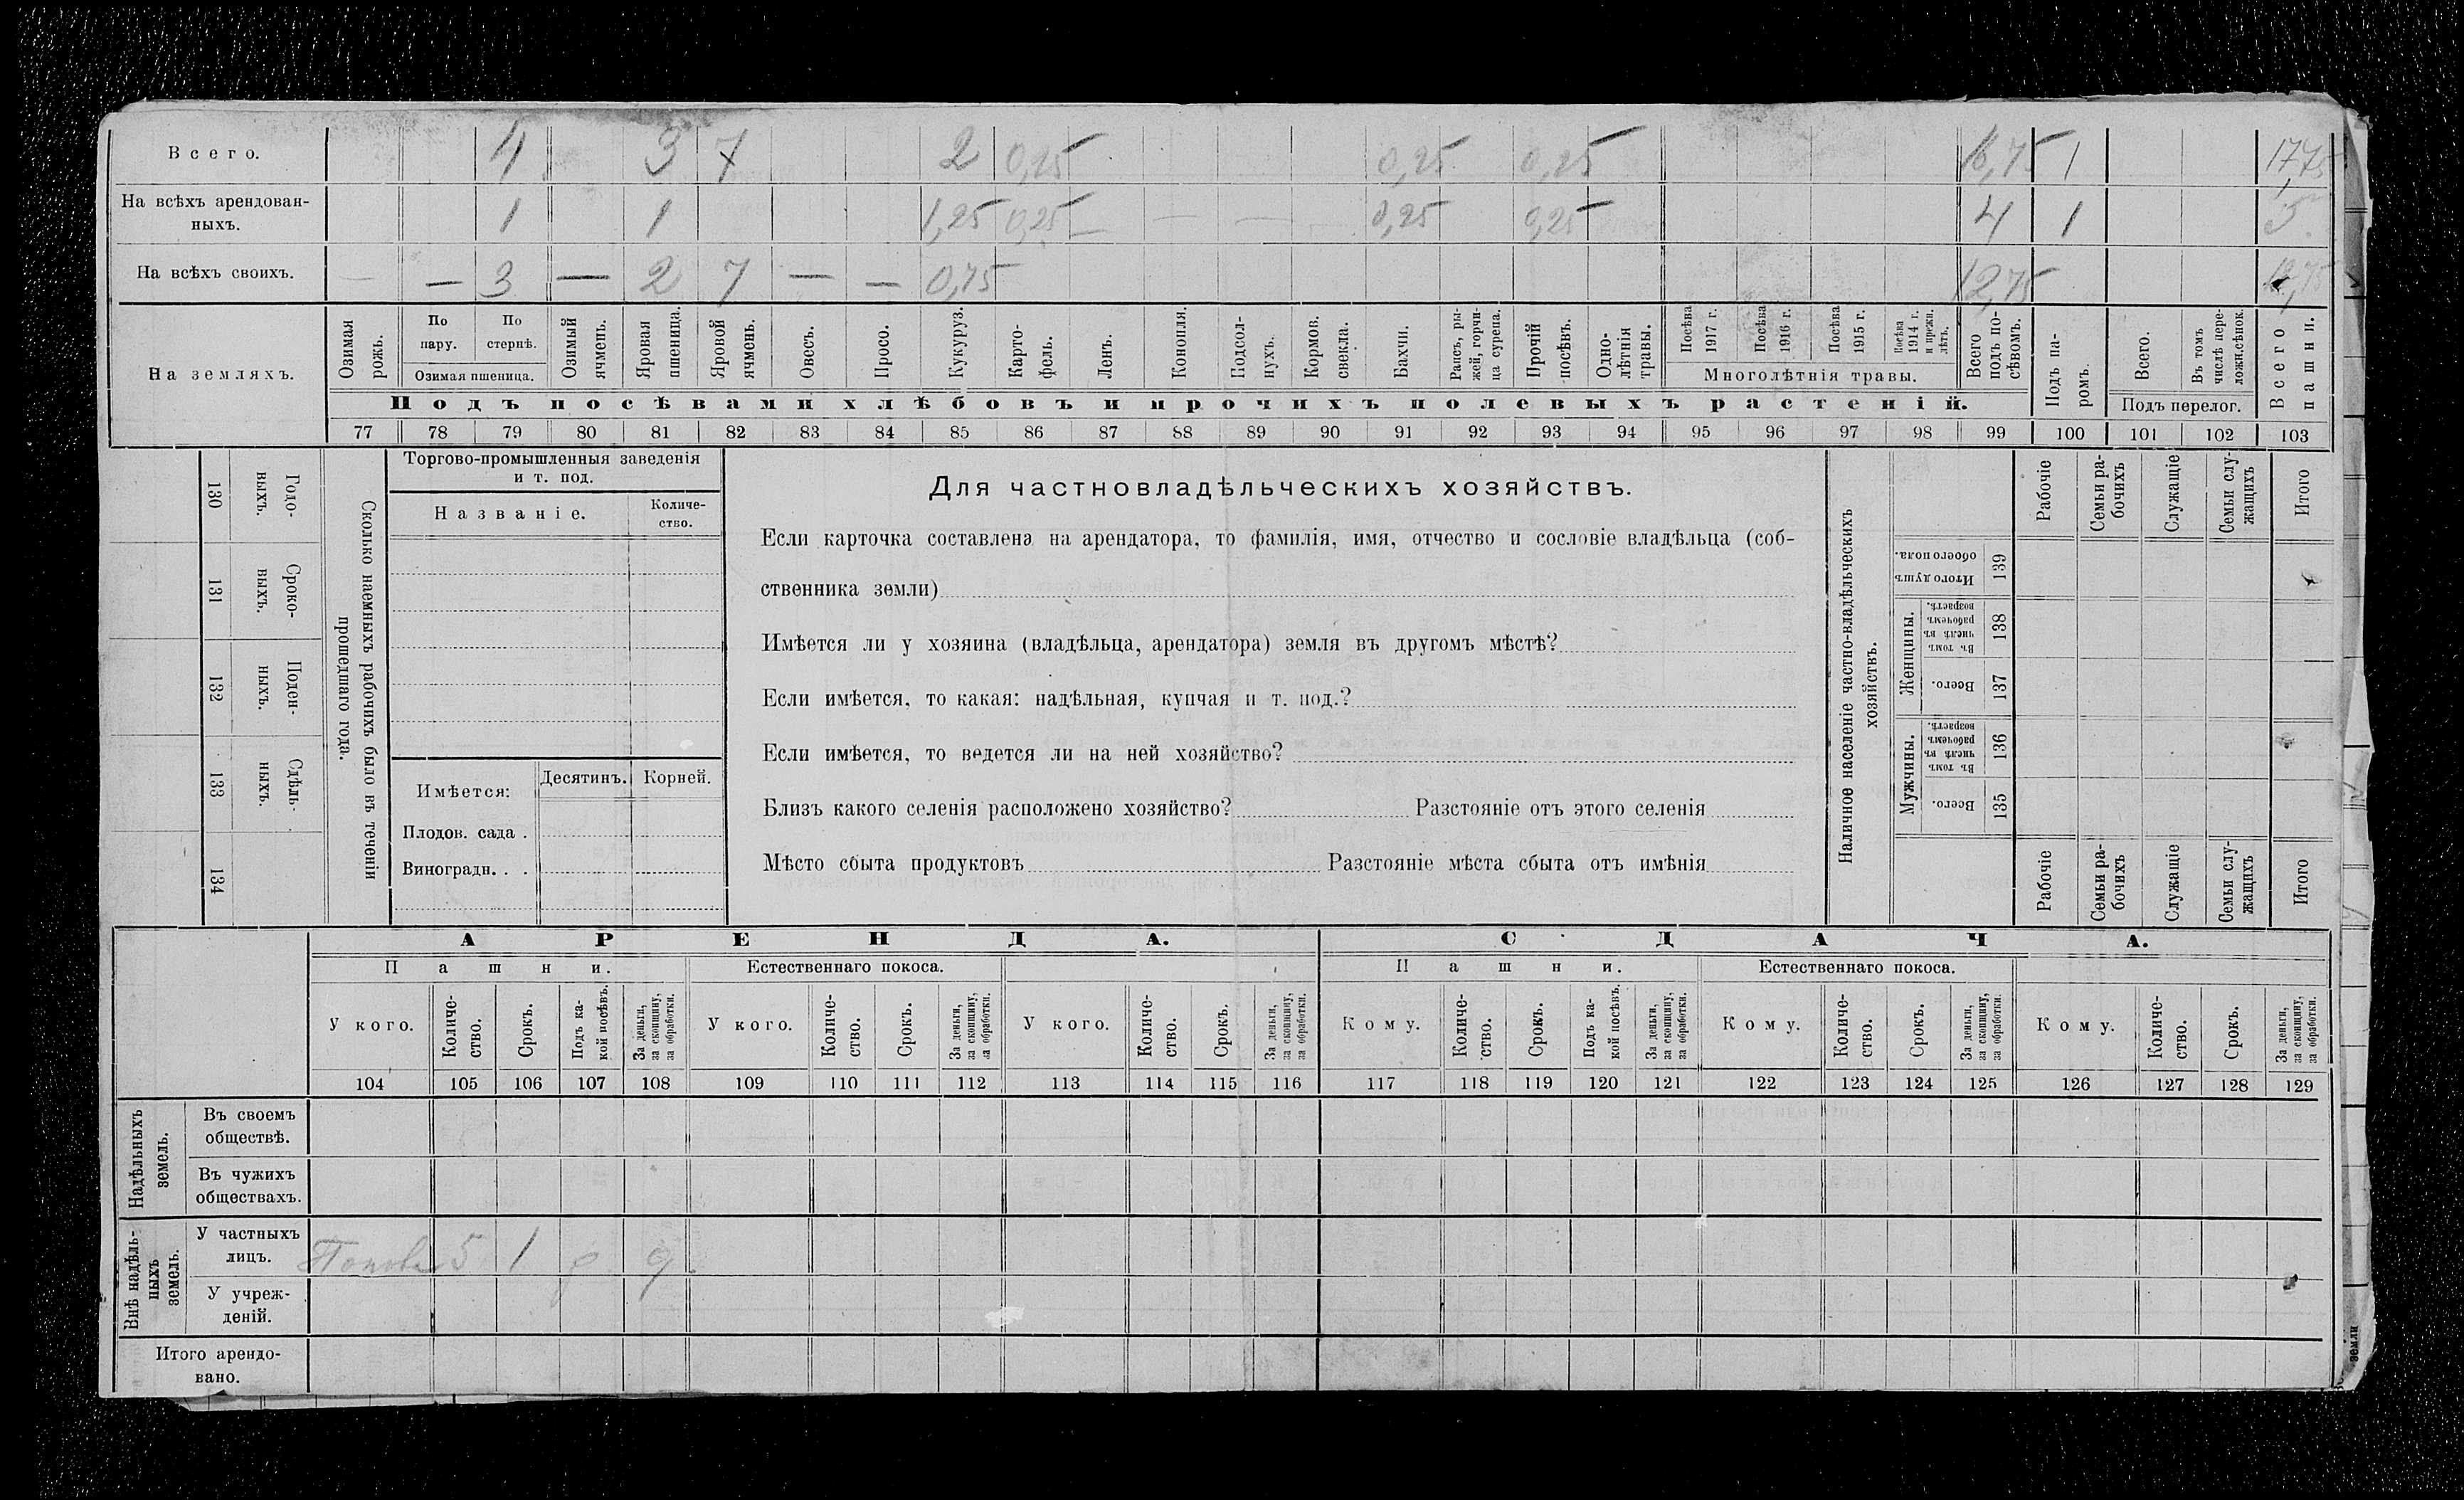 Всего. 4 3 7 2 0,25 0,25 0,25 16,75 1 17,75
На всѣхъ арендован-
ныхъ. 1 1 1,25 0,25 — — — 0,25 0,25 4 1 5
На всѣхъ своихъ. — — 3 — 2 7 — — 0,75 12,75 12,75
На земляхъ.
Озимая рожь.
По пару.
По стернѣ.
Озимая пшеница.
Озимый ячмень.
Яровая пшеница.
Яровой ячмень.
Овесъ.
Просо.
Кукуруз.
Карто-
фель.
Ленъ.
Конопля.
Подсол-
нухъ.
Кормов.
свекла.
Бахчи.
Рапсъ, ры-
жей, горчи-
ца сурепа.
Прочій
посѣвъ.
Одно-
лѣтнія
травы.
Посѣва
1917 г.
Посѣва
1916 г.
Посѣва
1915 г.
Посѣва
1914 г.
и прежн.
лѣтъ.
Многолѣтнія травы.
Всего
подъ по-
сѣвомъ.
Подъ посѣвами хлѣбовъ и прочихъ полевыхъ растеній.
Подъ па-
ромъ.
Всего.
Въ томъ
числѣ пере-
ложн.сѣнок.
Подъ перелог.
Всего
пашни.
77 78 79 80 81 82 83 84 85 86 87 88 89 90 91 92 93 94 95 96 97 98 99 100 101 102 103
130
Годо-
выхъ.
131
Сроко-
выхъ.
132
Поден-
ныхъ.
133
Сдѣль-
ныхъ.
134
Сколько наемныхъ рабочихъ было въ теченіи
прошедшаго года.
Торгово-промышленныя заведенія
и т. под.
Названіе.
Количе-
ство.
Имѣется:
Десятинъ. Корней.
Плодов. сада .
Виноградн. . .
Для частновладѣльческихъ хозяйствъ.
Если карточка составлена на арендатора, то фамилія, имя, отчество и сословіе владѣльца (соб-
ственника земли)
Имѣется ли у хозяина (владѣльца, арендатора) земля въ другомъ мѣстѣ?
Если имѣется, то какая: надѣльная, купчая и т. под.?
Если имѣется, то ведется ли на ней хозяйство?
Близъ какого селенія расположено хозяйство? Разстояніе отъ этого селенія
Мѣсто сбыта продуктовъ Разстояніе мѣста сбыта отъ имѣнія
Наличное населеніе частно-владѣльческихъ
хозяйствъ.
Рабочіе
Семьи ра-
бочихъ
Служащіе
Семьи слу-
жащихъ
Итого
Итого душъ
обоего пола.
139
Женщины.
Въ томъ
числѣ въ
рабочемъ
возрастѣ.
138
Всего.
137
Мужчины.
Въ томъ
числѣ въ
рабочемъ
возрастѣ.
136
Всего.
135
Рабочіе
Семьи ра-
бочихъ
Служащіе
Семьи слу-
жащихъ
Итого
АРЕНДА.
СДАЧА.
Пашни. Естественнаго покоса. Пашни. Естественнаго покоса.
У кого.
Количе-
ство.
Срокъ.
Подъ ка-
кой посѣвъ.
За деньги,
за скопщину,
за обработки.
У кого.
Количе-
ство.
Срокъ.
За деньги,
за скопщину,
за обработки.
У кого.
Количе-
ство.
Срокъ.
За деньги,
за скопщину,
за обработки.
Кому.
Количе-
ство.
Срокъ.
Подъ ка-
кой посѣвъ.
За деньги,
за скопщину,
за обработки.
Кому.
Количе-
ство.
Срокъ.
За деньги,
за скопщину,
за обработки.
Кому.
Количе-
ство.
Срокъ.
За деньги,
за скопщину,
за обработки.
104 105 106 107 108 109 110 111 112 113 114 115 116 117 118 119 120 121 122 123 124 125 126 127 128 129
Надѣльныхъ
земель.
Въ своемъ
обществѣ.
Въ чужихъ
обществахъ.
Внѣ надѣль-
ныхъ
земель.
У частныхъ
лицъ. 5 1 д.
У учреж-
деній.
Итого арендо-
вано.
земли